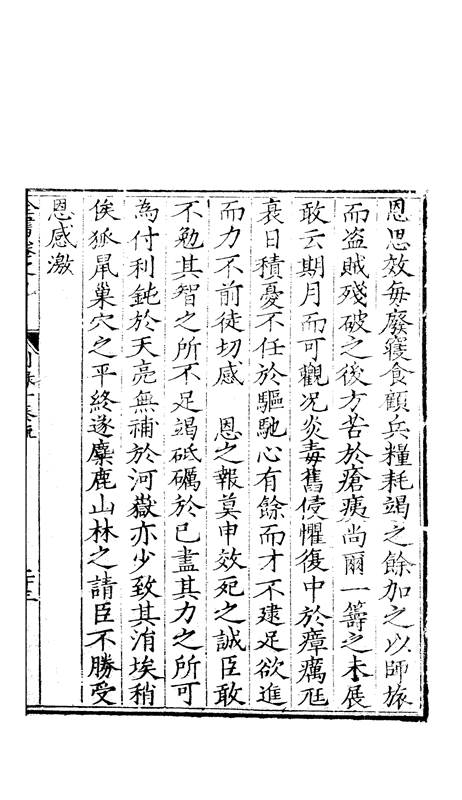 恩思效每廢寢食顧兵糧耗竭之餘加之以師旅
而盗賊殘破之後方苦於瘡痍尚爾一籌之未展
敢云期月而可觀况炎毒舊侵懼復中於瘴癘尫
衰日積憂不任於驅馳心有餘而才不逮足欲進
而力不前徒切感　恩之報莫申效死之誠臣敢
不勉其智之所不足竭砥礪於已盡其力之所可
為付利鈍於天亮無補於河嶽亦少致其涓埃稍
俟狐鼠巢穴之平終遂麋鹿山林之請臣不勝受
恩感激